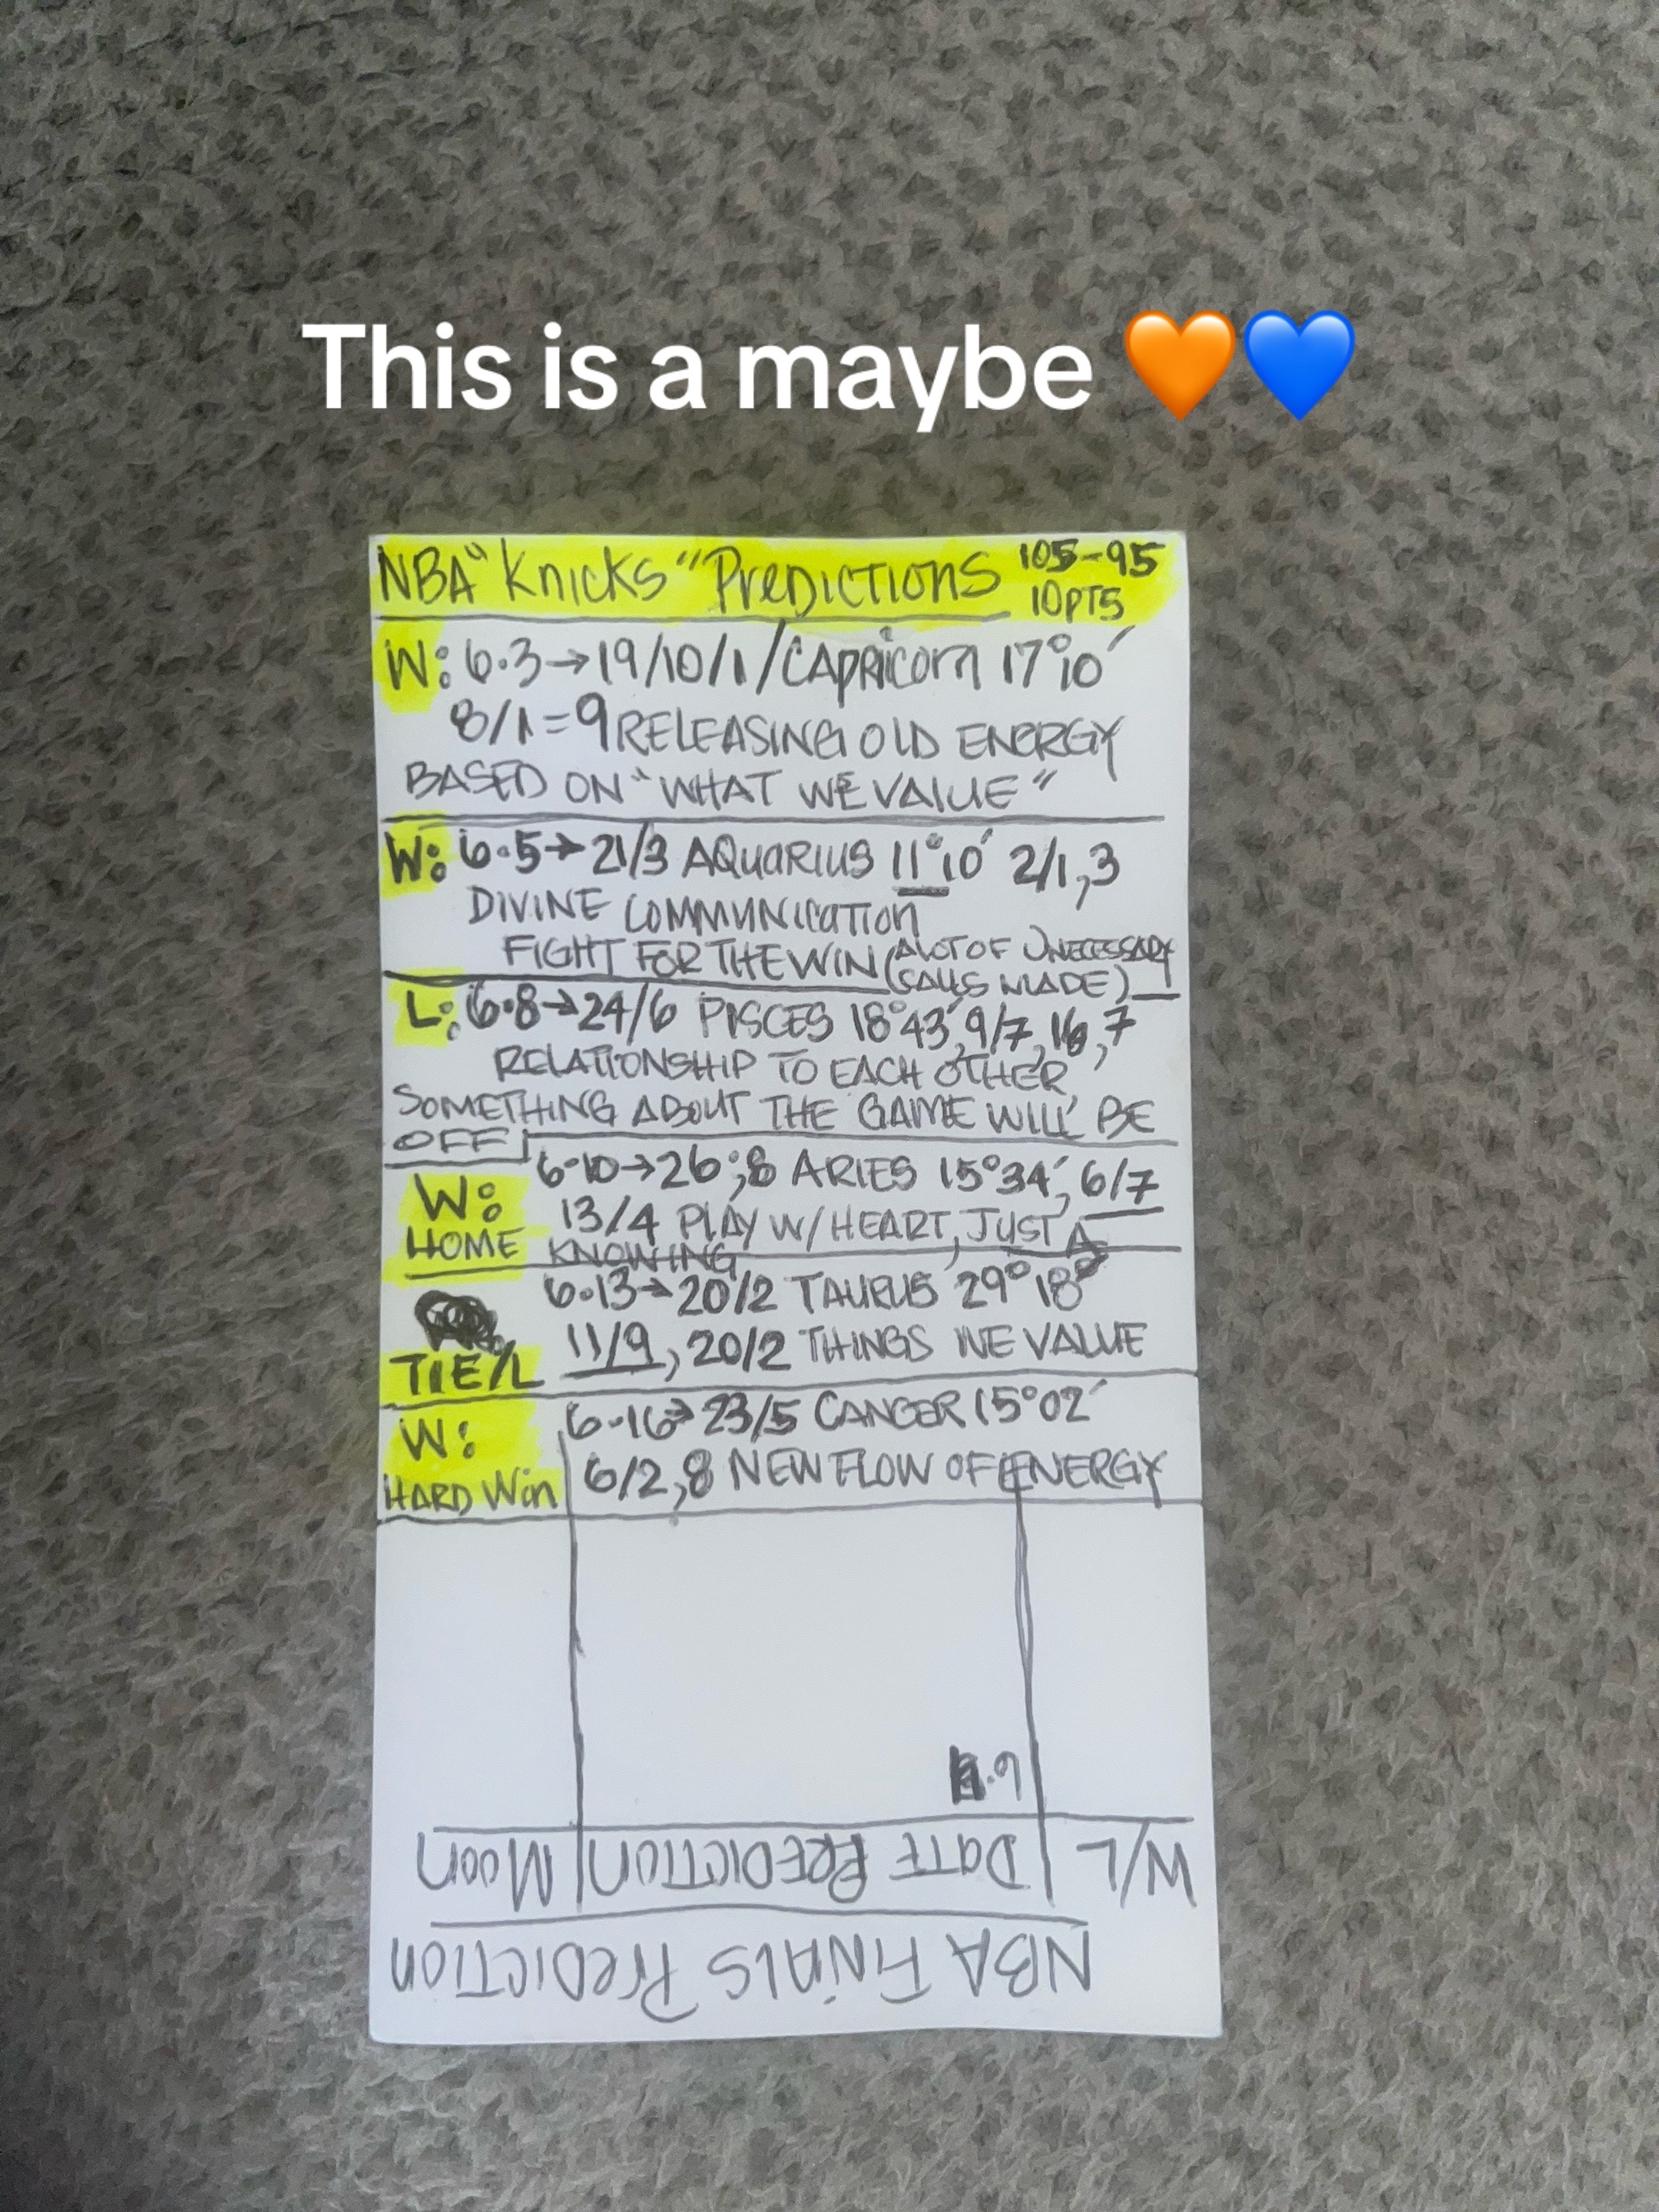 This is a maybe 🧡💙
NBA "Knicks" Predictions 105-95
10PTS
W: 6.3→19/10/1/CAPRICORN 17°10′
8/1=9 RELEASING OLD ENERGY
BASED ON "WHAT WE VALUE"
W: 6.5→21/3 AQUARIUS 11°10′ 2/1,3
DIVINE COMMUNICATION
FIGHT FOR THE WIN (A LOT OF UNECESSARY
CALLS MADE)
L: 6.8→24/6 PISCES 18°43′, 9/7, 16, 7
RELATIONSHIP TO EACH OTHER,
SOMETHING ABOUT THE GAME WILL BE
OFF
W: 6-10→26;8 ARIES 15°34′, 6/7
HOME 13/4 PLAY W/HEART, JUST A
KNOWING
6.13→20/2 TAURUS 29°18°
TIE/L 11/9, 20/2 THINGS WE VALUE
W: 6-16→23/5 CANCER 15°02′
HARD Win 6/2,8 NEW FLOW OF ENERGY
NBA FINALS PREDICTION
W/L DATE PREDICTION Moon
6.